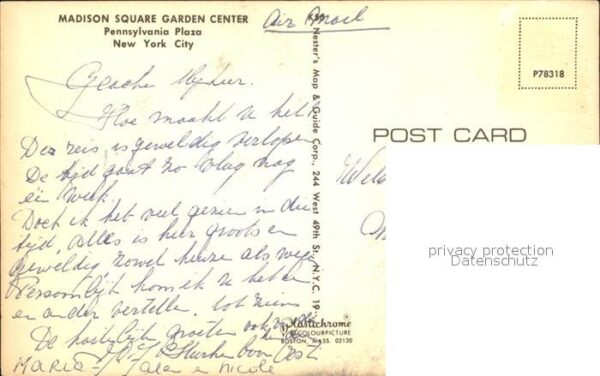 MADISON SQUARE GARDEN CENTER
Pennsylvania Plaza
New York City
Air Mail
Geachte Mijnheer.
Hoe maakt U het
Deze reis is geweldig verlopen
De tijd gaat zo vlug nog
één week.
Doch ik heb veel gezien in die
tijd, alles is hier groots en
geweldig zowel
Persoonlijk kom ik U het een
en ander vertellen. tot ziens
De hartelijke groeten ook van
MARIA
Nicole
Nester's Map & Guide Corp., 244 West 49th St., N.Y.C. 19
Plastichrome
COLOURPICTURE
BOSTON, MASS. 02130
P78318
POST CARD
privacy protection
Datenschutz